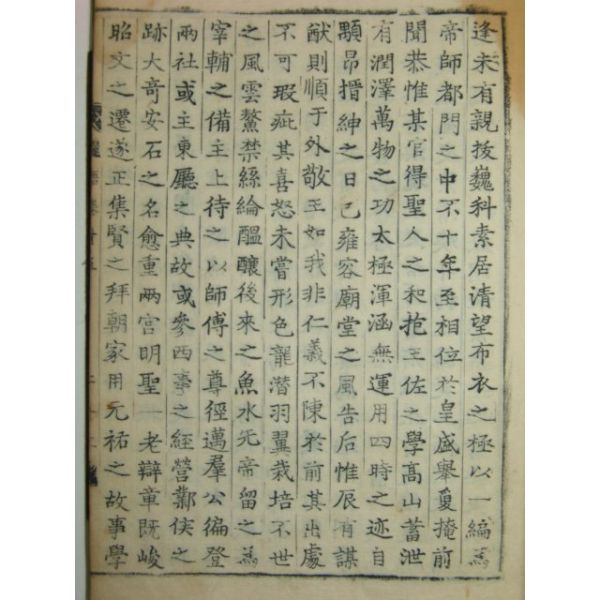 逢未有親抜巍科素居清望布衣之極以一編爲
帝師都門之中不十年至相位於皇盛舉夐掩前
聞恭惟某官得聖人之和抱王佐之學高山蓄泄
有潤澤萬物之功太極渾涵無運用四時之迹自
顒昂搢紳之日已雍容廟堂之風告后惟辰有謀
猷則順于外敬王如我非仁義不陳於前其出處
不可瑕疵其喜怒未嘗形色龍潛羽翼栽培不世
之風雲鰲禁絲綸醞釀後來之魚水先帝留之爲
宰輔之備主上待之以師傅之尊徑邁羣公徧登
兩社或主東廳之典故或參西事之經營鄼侯之
跡大奇安石之名愈重兩宮明聖一老辯章既峻
昭文之遷遂正集賢之拜朝家用元祐之故事學